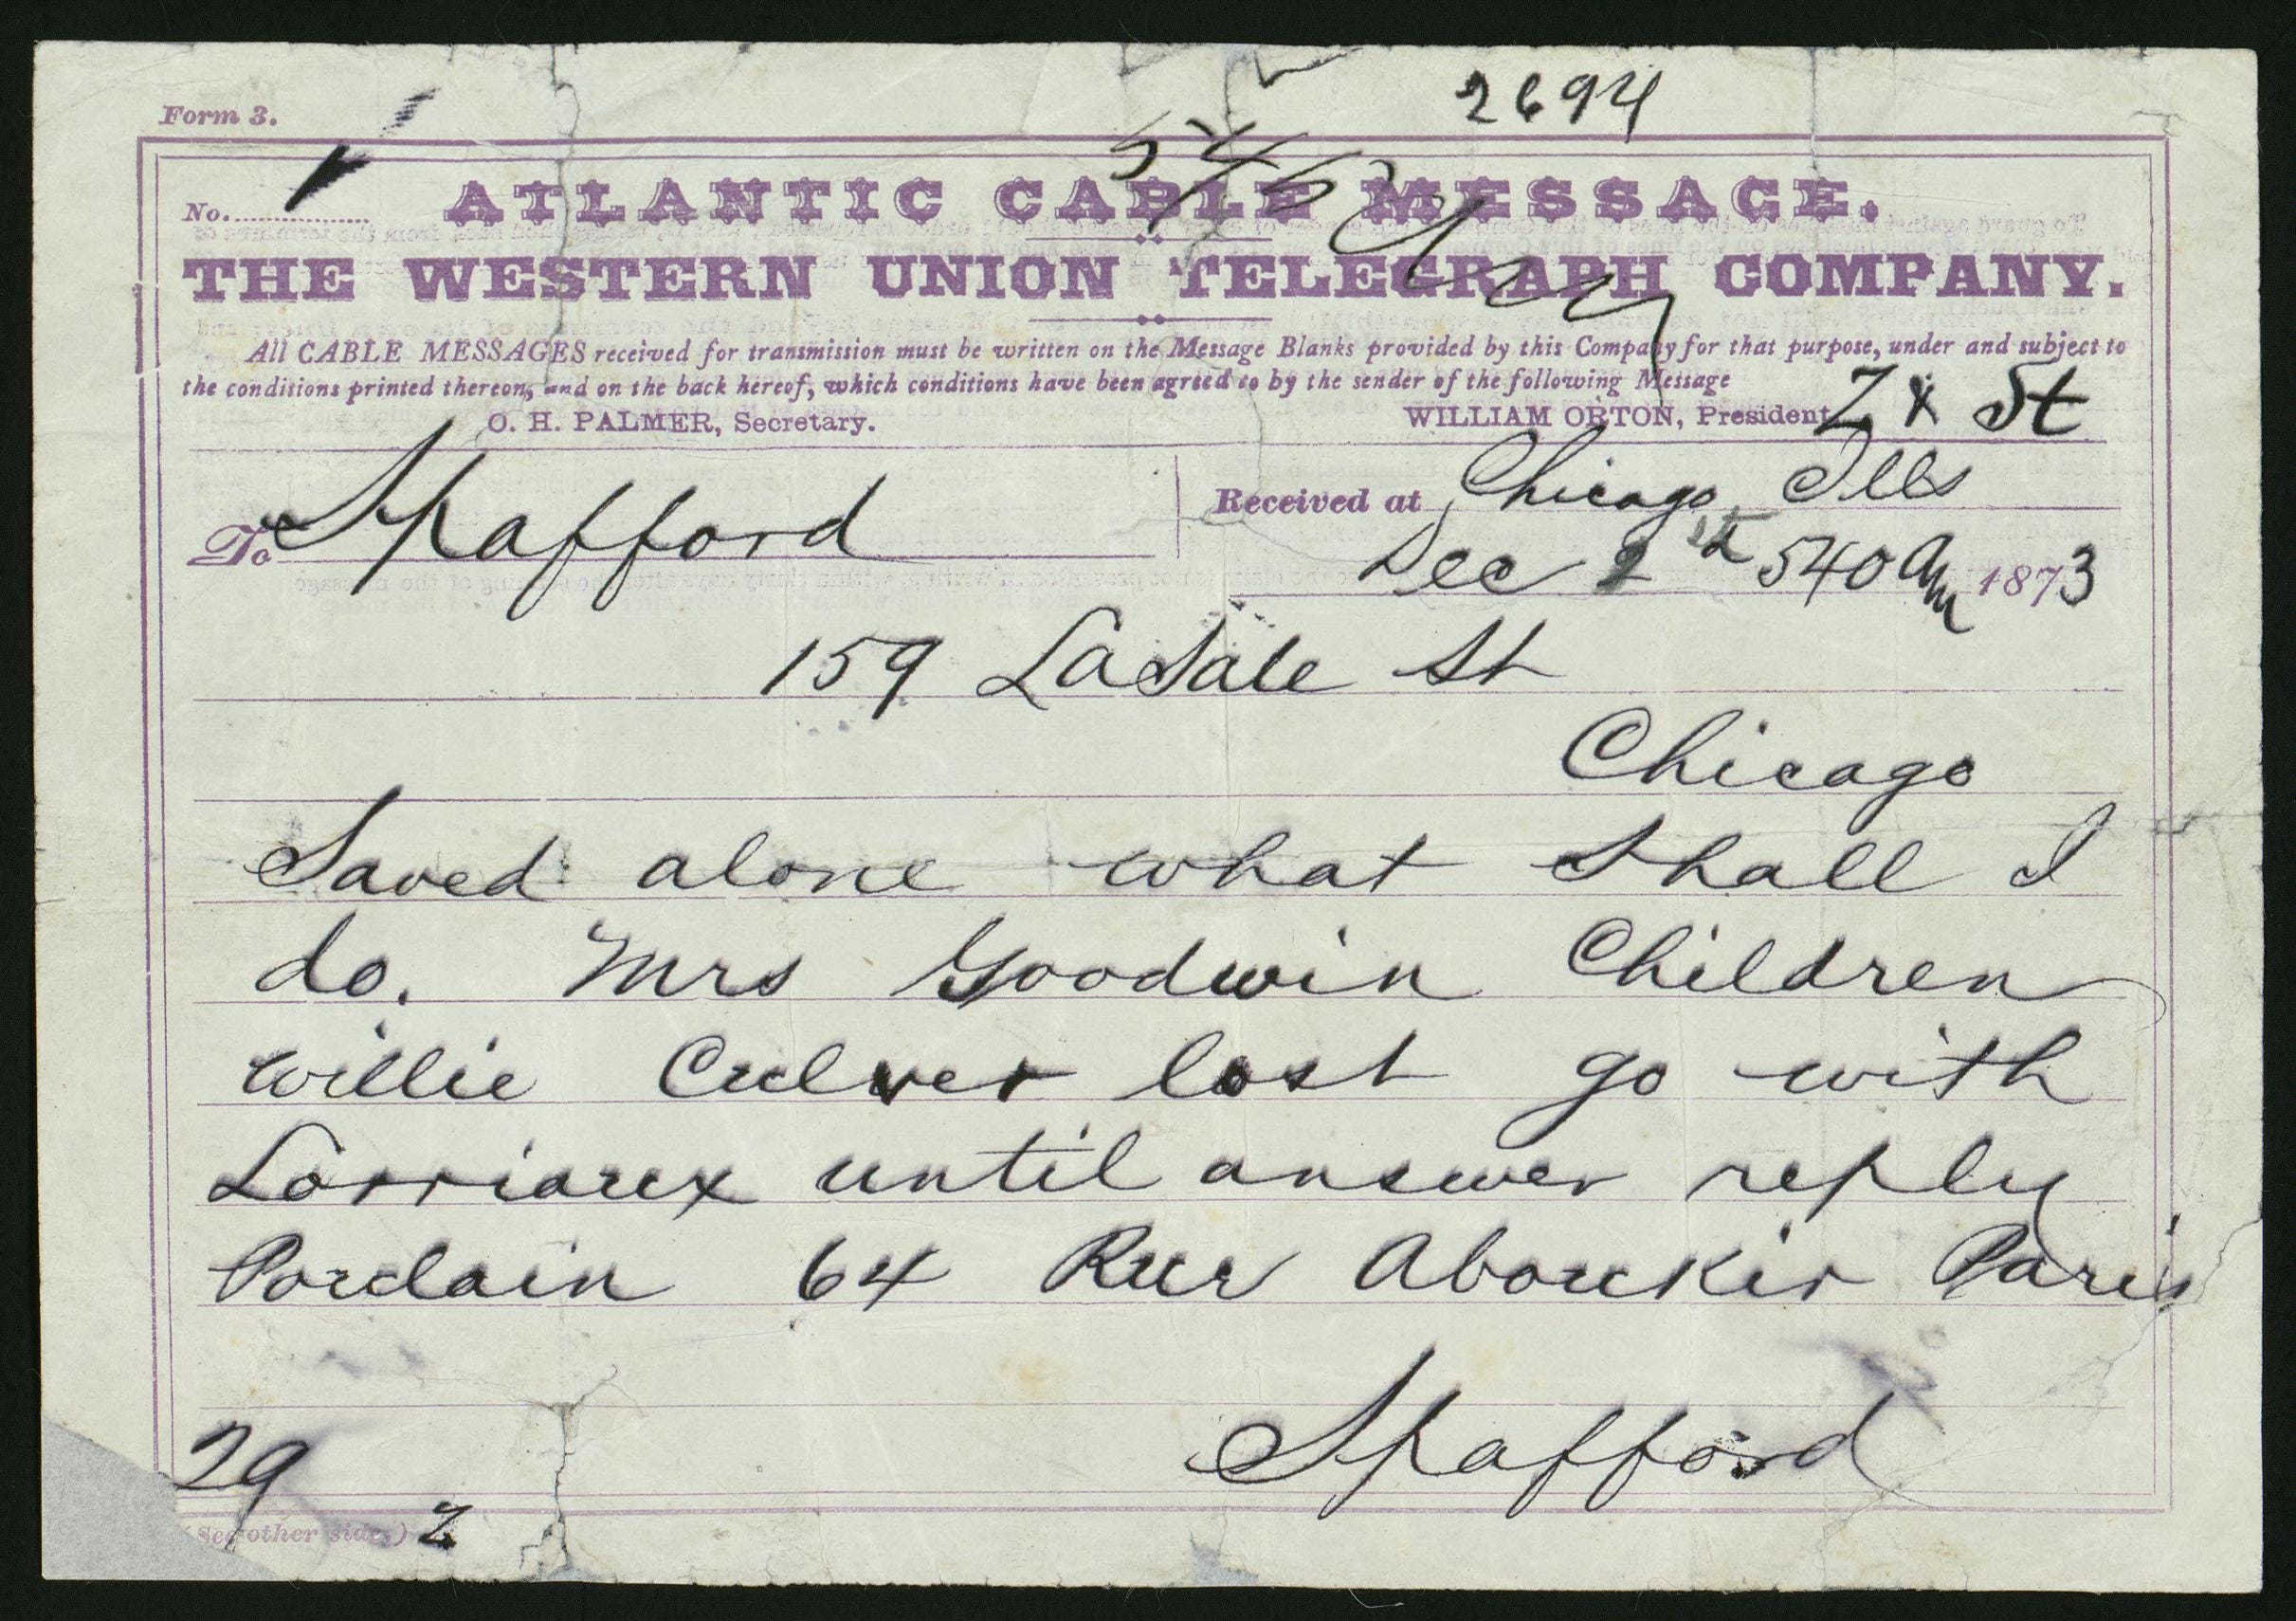 2694
Form 3.
No.
ATLANTIC CABLE MESSAGE.
THE WESTERN UNION TELEGRAPH COMPANY.
All CABLE MESSAGES received for transmission must be written on the Message Blanks provided by this Company for that purpose, under and subject to
the conditions printed thereon, and on the back hereof, which conditions have been agreed to by the sender of the following Message
O. H. PALMER, Secretary.
WILLIAM ORTON, President
Z x St
To Spafford
Received at Chicago Ills
Dec 2 540 am 1873
159 LaSale St
Chicago
Saved alone what shall I
do. Mrs Goodwin Children
Willie Culver lost go with
Lorriaux until answer reply
Porclain 64 Rue Aboukir Paris
Spafford
29
(See other side.) 2